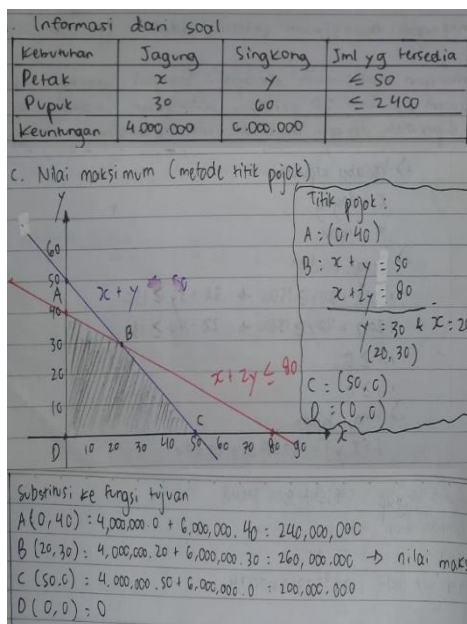 . Informasi dari soal
Kebutuhan Jagung Singkong Jml yg tersedia
Petak x y ≤ 50
Pupuk 30 60 ≤ 2400
Keuntungan 4.000.000 6.000.000
C. Nilai maksimum (metode titik pojok)
Titik pojok:
A : (0,40)
B : x + y = 50
x + 2y = 80
y = 30 & x = 20
(20,30)
C : (50,0)
D : (0,0)
Y
60
50
A
40
30
20
10
x + y ≤ 50
B
x + 2y ≤ 80
C
D 10 20 30 40 50 60 70 80 90 x
Substitusi ke fungsi tujuan
A(0,40) : 4,000,000.0 + 6,000,000.40 : 240,000,000
B (20,30) : 4,000,000.20 + 6,000,000.30 : 260,000.000 → nilai maks
C (50,0) : 4.000.000.50 + 6,000,000.0 : 200,000.000
D(0,0) : 0